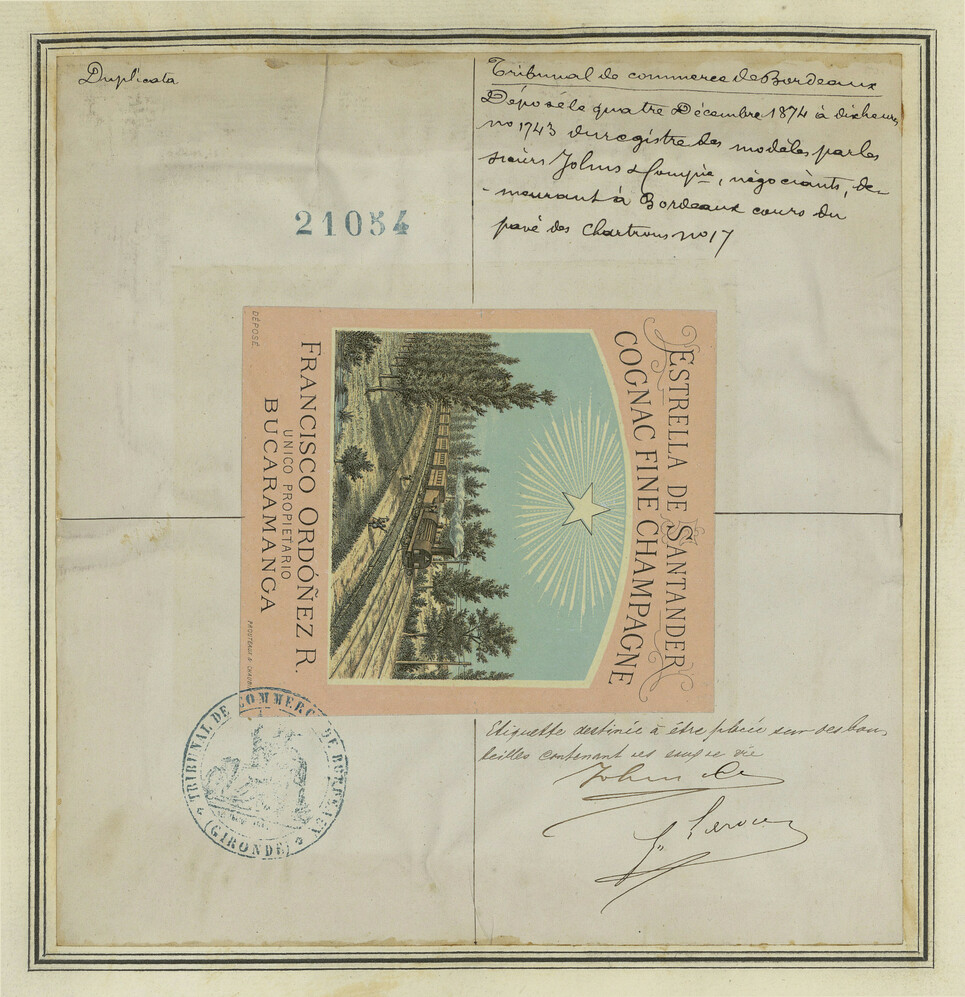 Duplicata
Tribunal de commerce de Bordeaux
Déposé le quatre Décembre 1874 à dix heures
no 1743 du registre des modèles par les
sieurs Johns & Compie, négociants, de-
-meurant à Bordeaux cours du
pavé des Chartrons no 17
21054
ESTRELLA DE SANTANDER
COGNAC FINE CHAMPAGNE
FRANCISCO ORDÓÑEZ R.
UNICO PROPIETARIO
BUCARAMANGA
DÉPOSÉ
TRIBUNAL DE COMMERCE DE BORDEAUX
(GIRONDE)
Etiquette destinée à être placée sur des bou
teilles contenant des eaux de vie